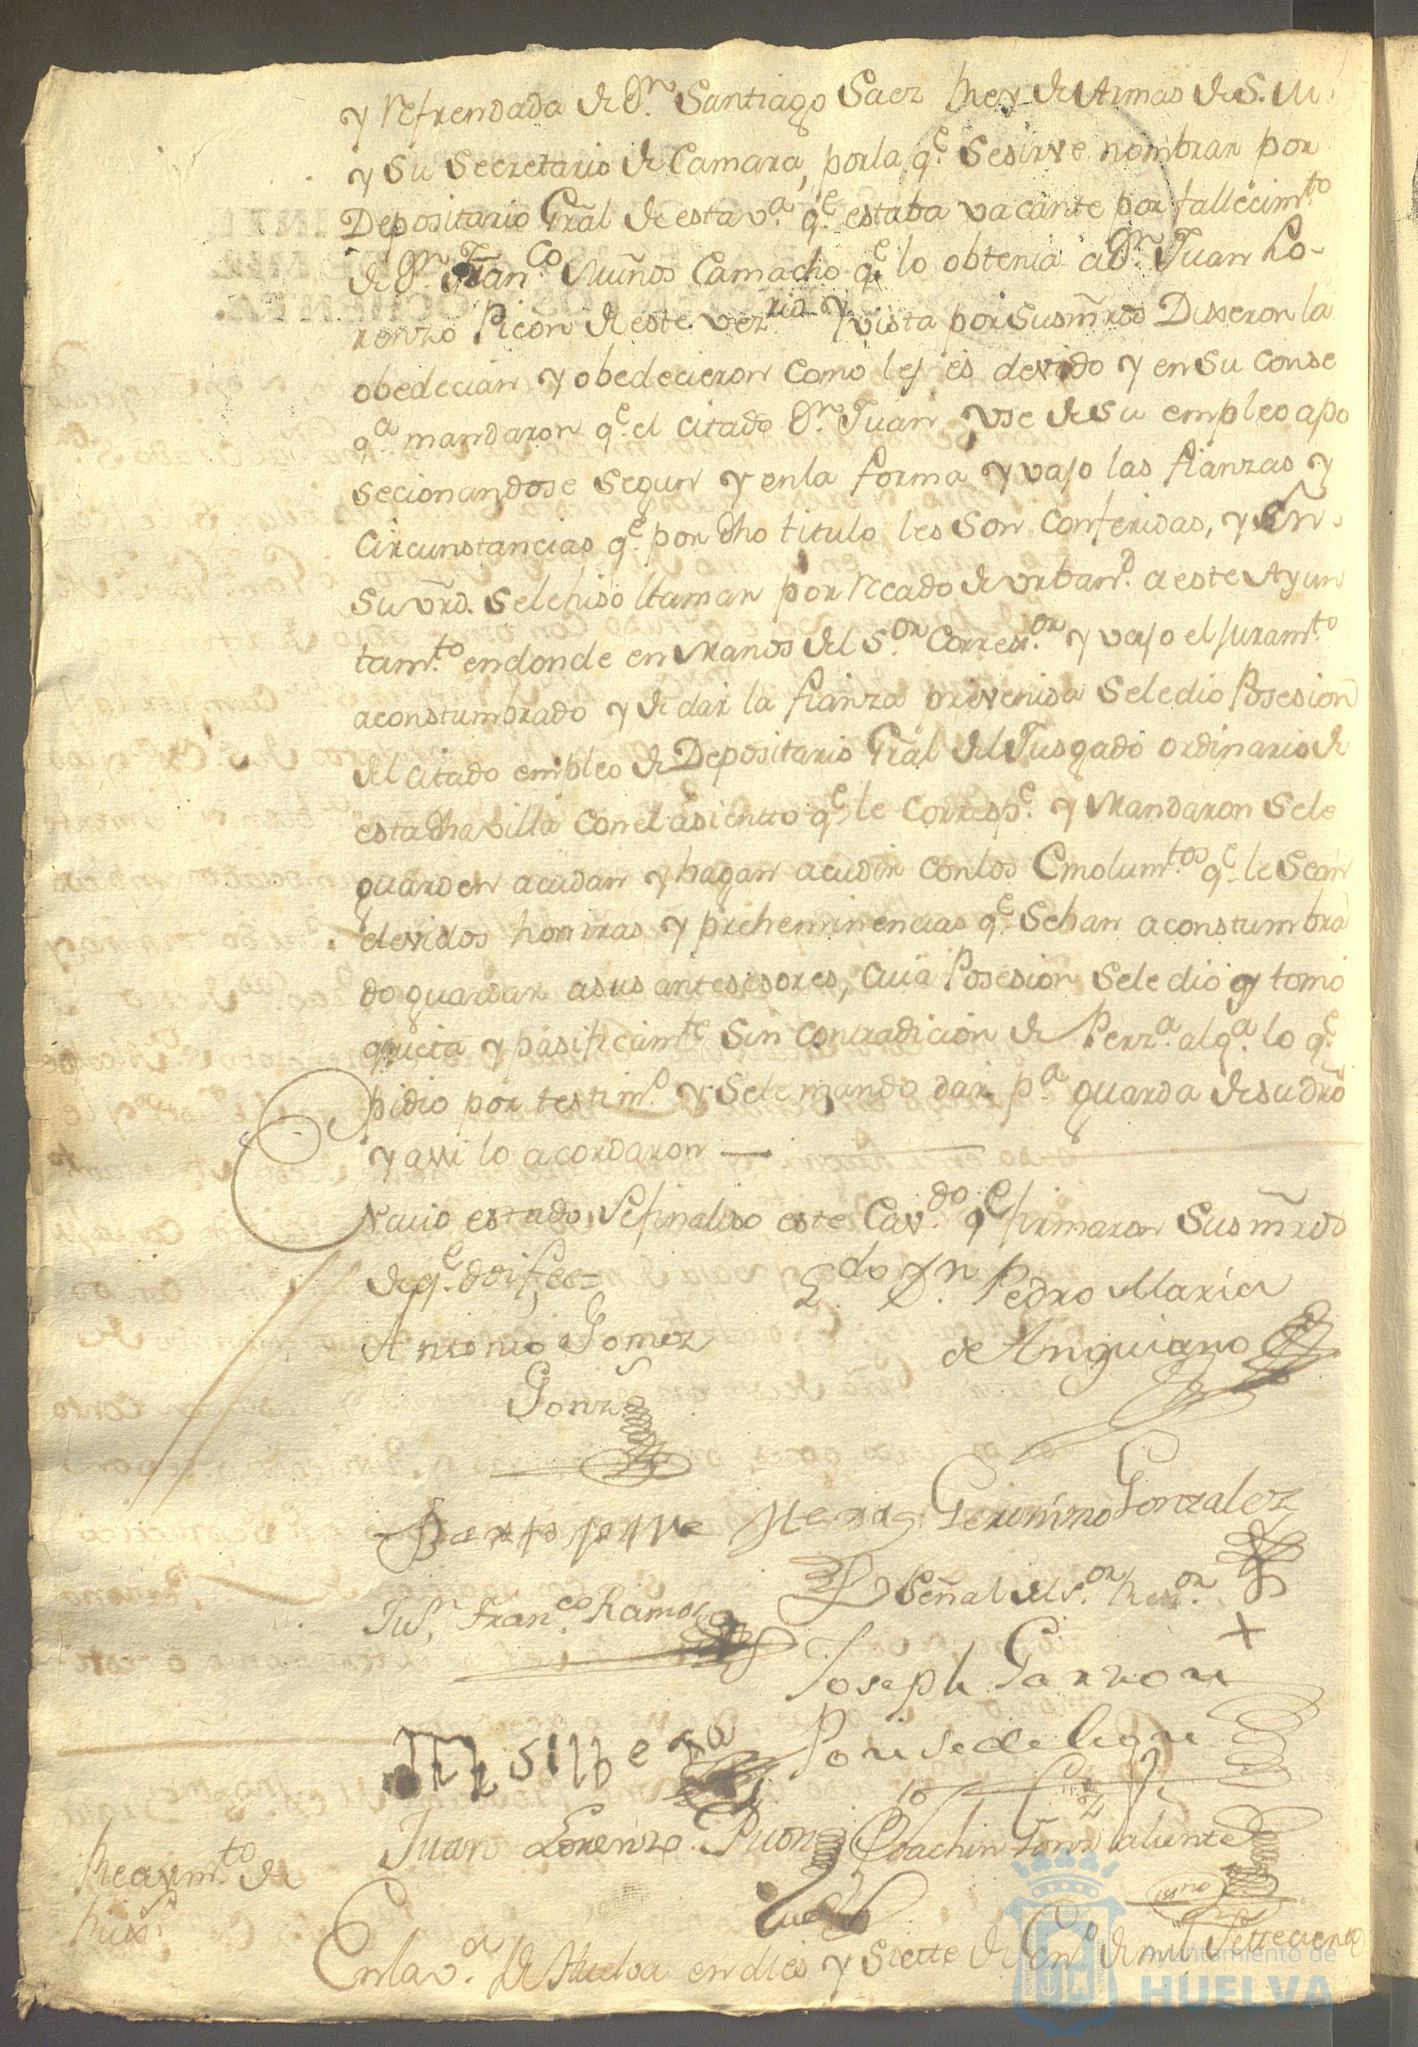 y Refrendada de Dn. Santiago Saez Rey de Armas de S. M.
y su Secretario de Camara, por la qe. se sirve nombrar por
Depositario Gral de esta va. qe. estaba vacante por fallecimto
de Dn. Franco. Muños Camacho qe lo obtenia a Dn. Juan Lo-
renzo Picon de este vez rio y vista por sus mrds Dixeron la
obedecian y obedecieron como les es devido y en su conse
qa mandaron qe. el citado Dn. Juan use de su empleo apo
secionandose segun y en la forma y vajo las fianzas y
Circunstancias qe. por dho titulo les son conferidas, y en
su vrd. se le hiso llamar por Recado de urband. a este Ayun
tamto. en donde en Manos del Sor. Correxor. y vajo el juramto.
aconstumbrado y de dar la fianza prevenida se le dio Posesion
del citado empleo de Depositario Gral del Jusgado ordinario de
esta dha villa con el asiento qe. le Correspe. y Mandaron se le
guarden acudan y hagan acudir con los Emolumtos. qe. le sean
devidos honrras y preheminencias qe. se han aconstumbra
do guardar a sus antesesores, cuia Posesion se le dio y tomo
quieta y pasificamte sin contradicion de Perza. alga. lo qe.
pidio por testimo. y se le mando dar pa. guarda de su dro
y assi lo acordaron —
N cuio estado se finaliso este Cavdo. qe firmaron sus mrds
de qe. doi fee=
Ldo. Dn. Pedro Maria
de Anguiano
Antonio Gomez
Gonzs
Geronimo Gonzalez
Señal del Sor. Rexor.
+
Jun. Franco. Ramos
Joseph Garzon
Ponse de leon
Silbera
Juan Lorenzo Picon
Joachin Gonz Valiente
Reavimto. de
En la va. de Huelva en dies y siette de Eno. de mil Settecientos
Ayuntamiento de
HUELVA